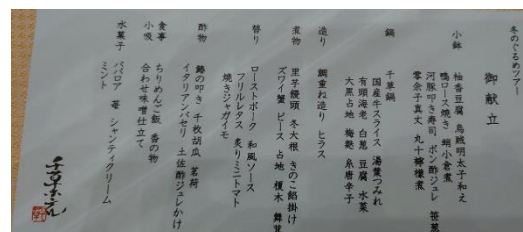 冬のぐるめツアー
御献立
小鉢 柚香豆腐 烏賊明太子和え
鴨ロース焼き 蛸小倉煮
河豚叩き寿司 ポン酢ジュレ 笹葱
零余子真丈 丸十檸檬煮
鍋 千草鍋
国産牛スライス 湯葉つみれ
有頭海老 白葱 豆腐 水菜
大黒占地 梅麩 糸唐辛子
造り 鯛重ね造り ヒラス
煮物 里芋饅頭 冬大根 きのこ餡掛け
ズワイ蟹 ピース 占地 榎木 舞茸
替り ローストポーク 和風ソース
フリルレタス 炙りミニトマト
焼きジャガイモ
酢物 鯵の叩き 千枚胡瓜 茗荷
イタリアンパセリ 土佐酢ジュレかけ
食事 ちりめんご飯 香の物
小吸 合わせ味噌仕立て
水菓子 ババロア 苺 シャンティクリーム
ミント
千草ホテル